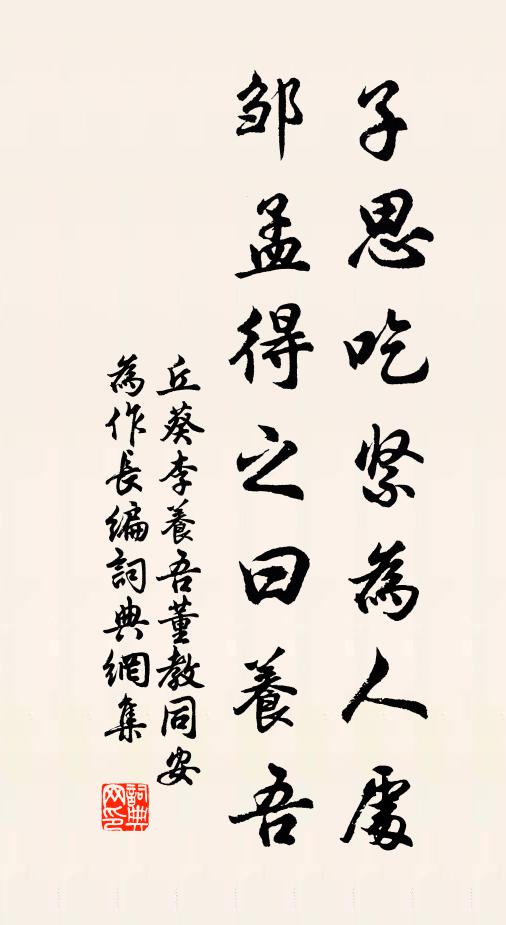 子思吃紧為人處
邹孟得之曰養吾
丘葵李養吾董教同安
為作長编詞典網集
詞典
网印